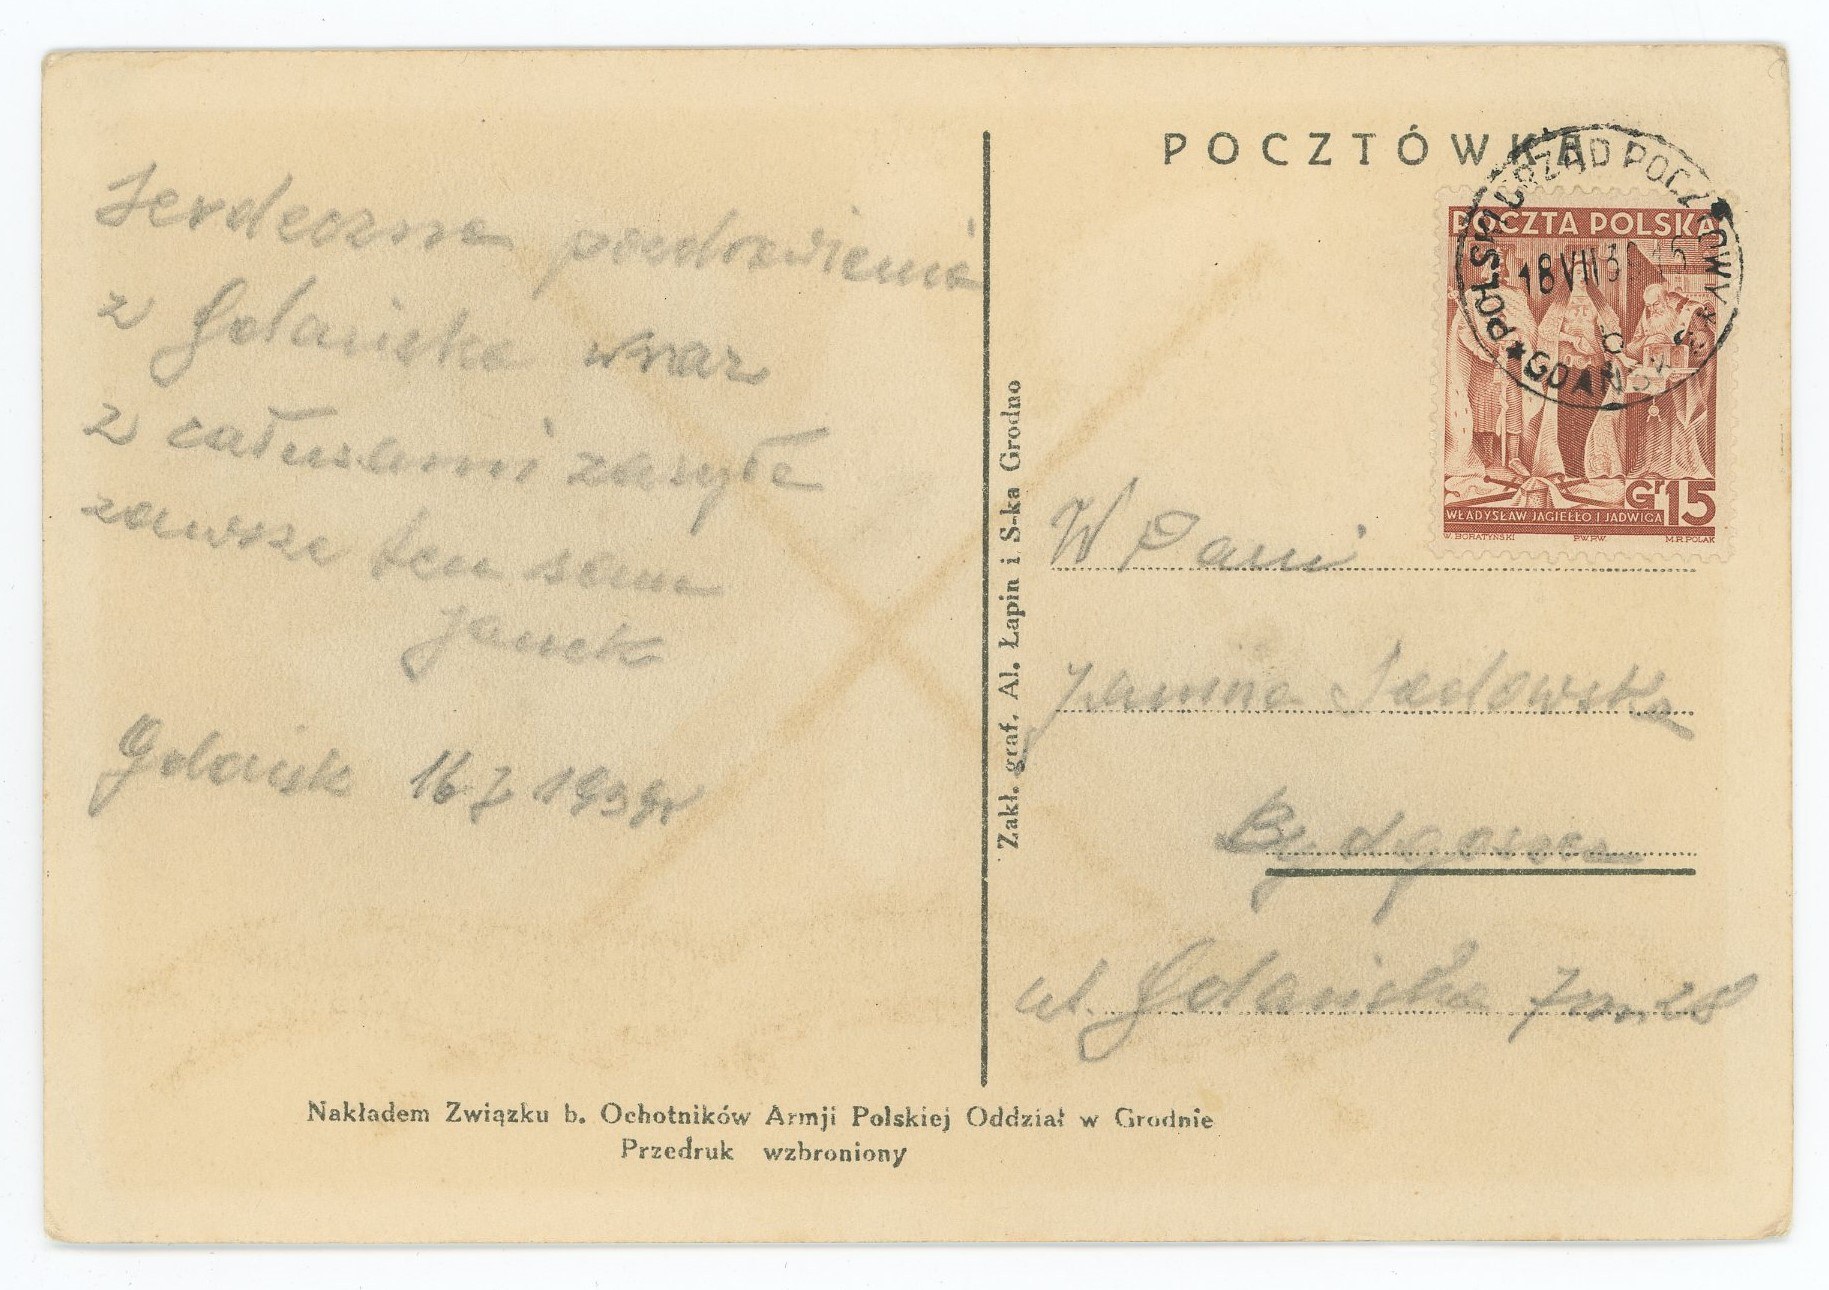 POCZTÓWKA
Serdeczne pozdrowienia
z Gdańska wraz
z całusami zasyła
zawsze ten sam
Janek
Gdańsk 16.7 1939r
POLSKI URZĄD POCZTOWY
GDAŃSK
18 VII 39
POCZTA POLSKA
Gr 15
WŁADYSŁAW JAGIEŁŁO I JADWIGA
W. BORATYŃSKI P.W.P.W. M.R. POLAK
W Pani
Janina Sadowska
Bydgoszcz
ul. Gdańska 7 m 28
Zakł. graf. Al. Łapin i S-ka Grodno
Nakładem Związku b. Ochotników Armji Polskiej Oddział w Grodnie
Przedruk wzbroniony